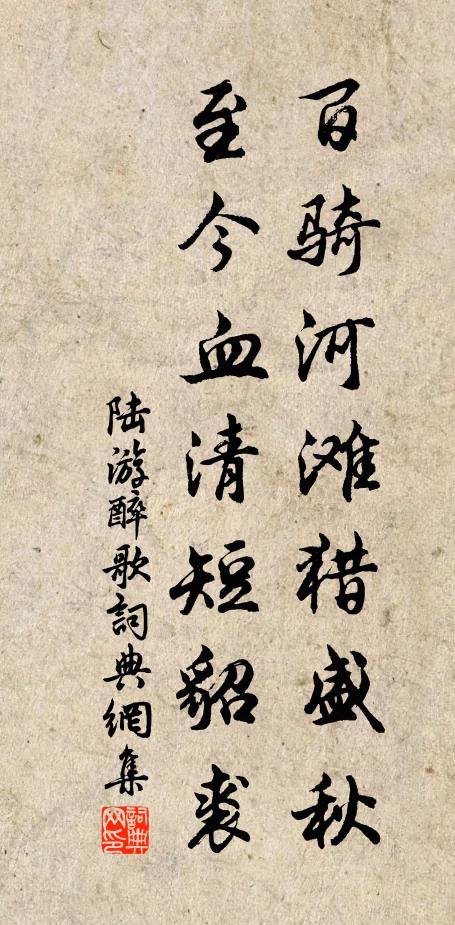 百骑河滩猎盛秋
至今血清短貂裘
陆游醉歌詞典網集
詞典网印